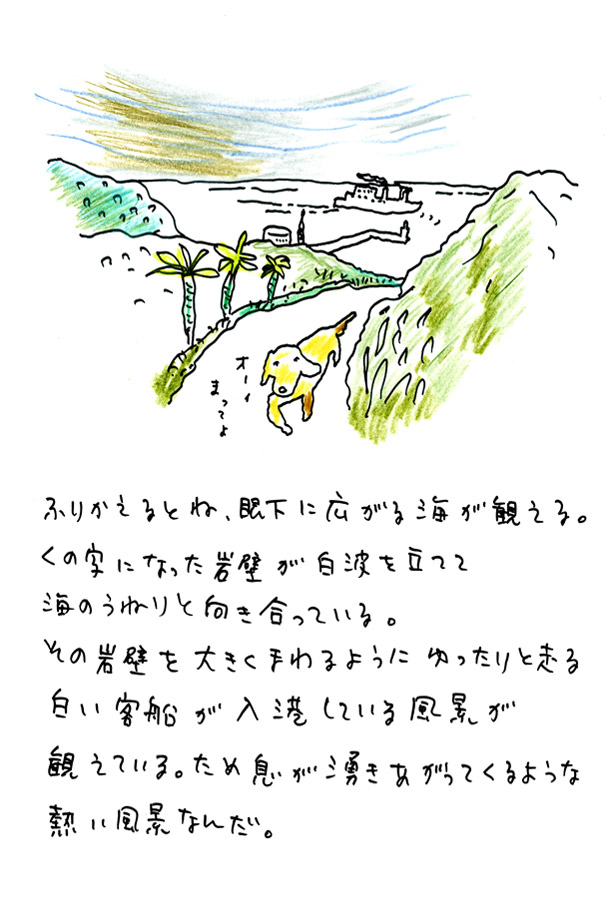 オーイ
まってよ
ふりかえるとね、眼下に広がる海が観える。
くの字になった岩壁が白波を立てて
海のうねりと向き合っている。
その岩壁を大きくまわるようにゆったりと走る
白い客船が入港している風景が
観えている。ため息が湧きあがってくるような
熱い風景なんだ。